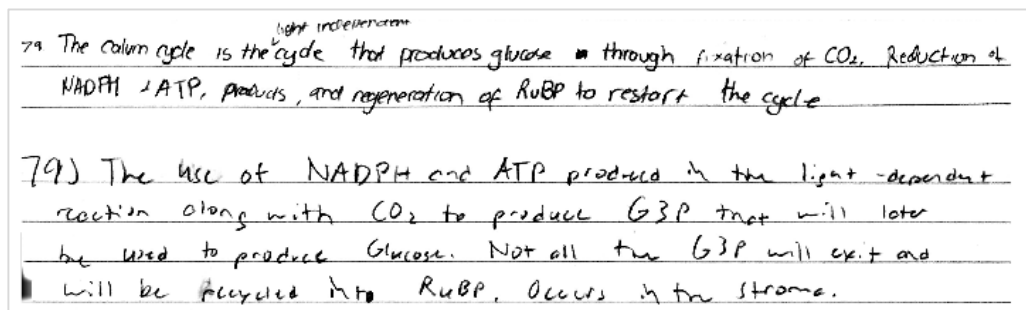 light independent
79 The calvin cycle is the cycle that produces glucose through fixation of CO2, Reduction of
NADPH & ATP, products, and regeneration of RuBP to restart the cycle
79) The use of NADPH and ATP produced in the light-dependent
reaction along with CO2 to produce G3P that will later
be used to produce Glucose. Not all the G3P will exit and
will be recycled into RuBP. Occurs in the stroma.